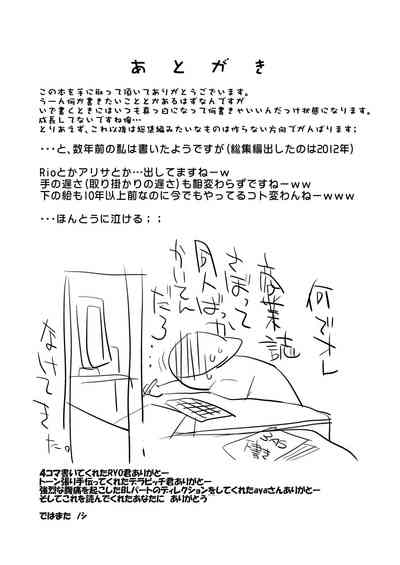 あとがき
この本を手に取って頂いてありがとうございます。
うーん何か書きたいこととかあるはずなんですが
いざ書くときにはいつも真っ白になって何書きゃいいんだっけ状態になります。
成長してないですね俺…
とりあえず、これ以後は総集編みたいなものは作らない方向でがんばります；
・・・と、数年前の私は書いたようですが(総集編出したのは2012年)
Rioとかアリサとか…出してますねーｗ
手の遅さ(取り掛かりの遅さ)も相変わらずですねーｗｗ
下の絵も10年以上前なのに今でもやってるコト変わんねーｗｗｗ
・・・ほんとうに泣ける；；
何でオレ
商業誌
さぼって
同人ばっか
かいてん
だろ…
なけてきた。
4コマ書いてくれたRYO君ありがとー
トーン張り手伝ってくれたデラピッチ君ありがとー
強烈な腹痛を起こしたBLパートのディレクションをしてくれたayaさんありがとー
そしてこれを読んでくれたあなたに ありがとう
ではまた ノシ